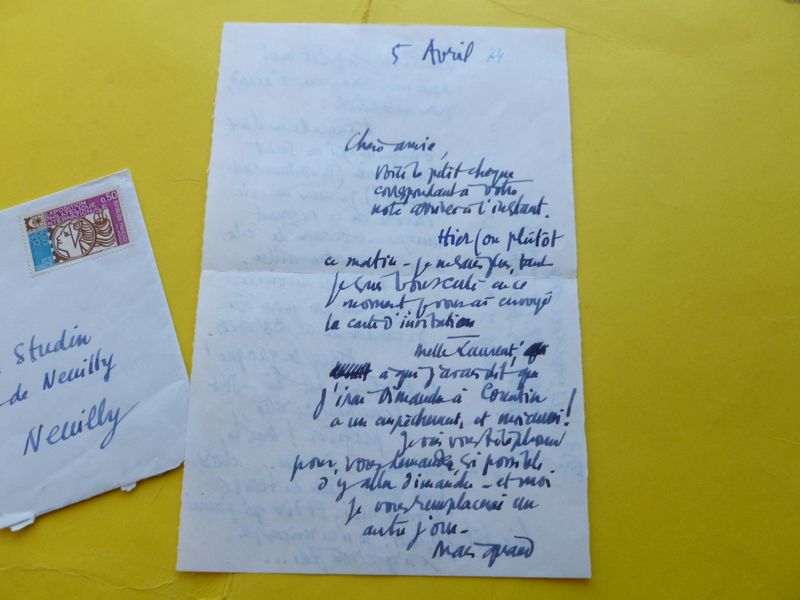 5 Avril 74
Chère amie,
voici le petit chèque
correspondant à votre
note arrivée à l'instant.
Hier (ou plutôt
ce matin - je ne sais plus, tant
je suis bousculé en ce
moment je vous ai envoyé
la carte d'invitation
Melle Laurent,
à qui j'avais dit que
j'irai Dimanche à Corentin
a un empêchement, et moi aussi!
Je vais vous téléphoner
pour vous demander, si possible
d'y aller dimanche - et moi
je vous remplacerai un
autre jour -
Mais quand
EXPOSITION
PHILATELIQUE
INTERNATIONALE
0,50
Studin
de Neuilly
Neuilly